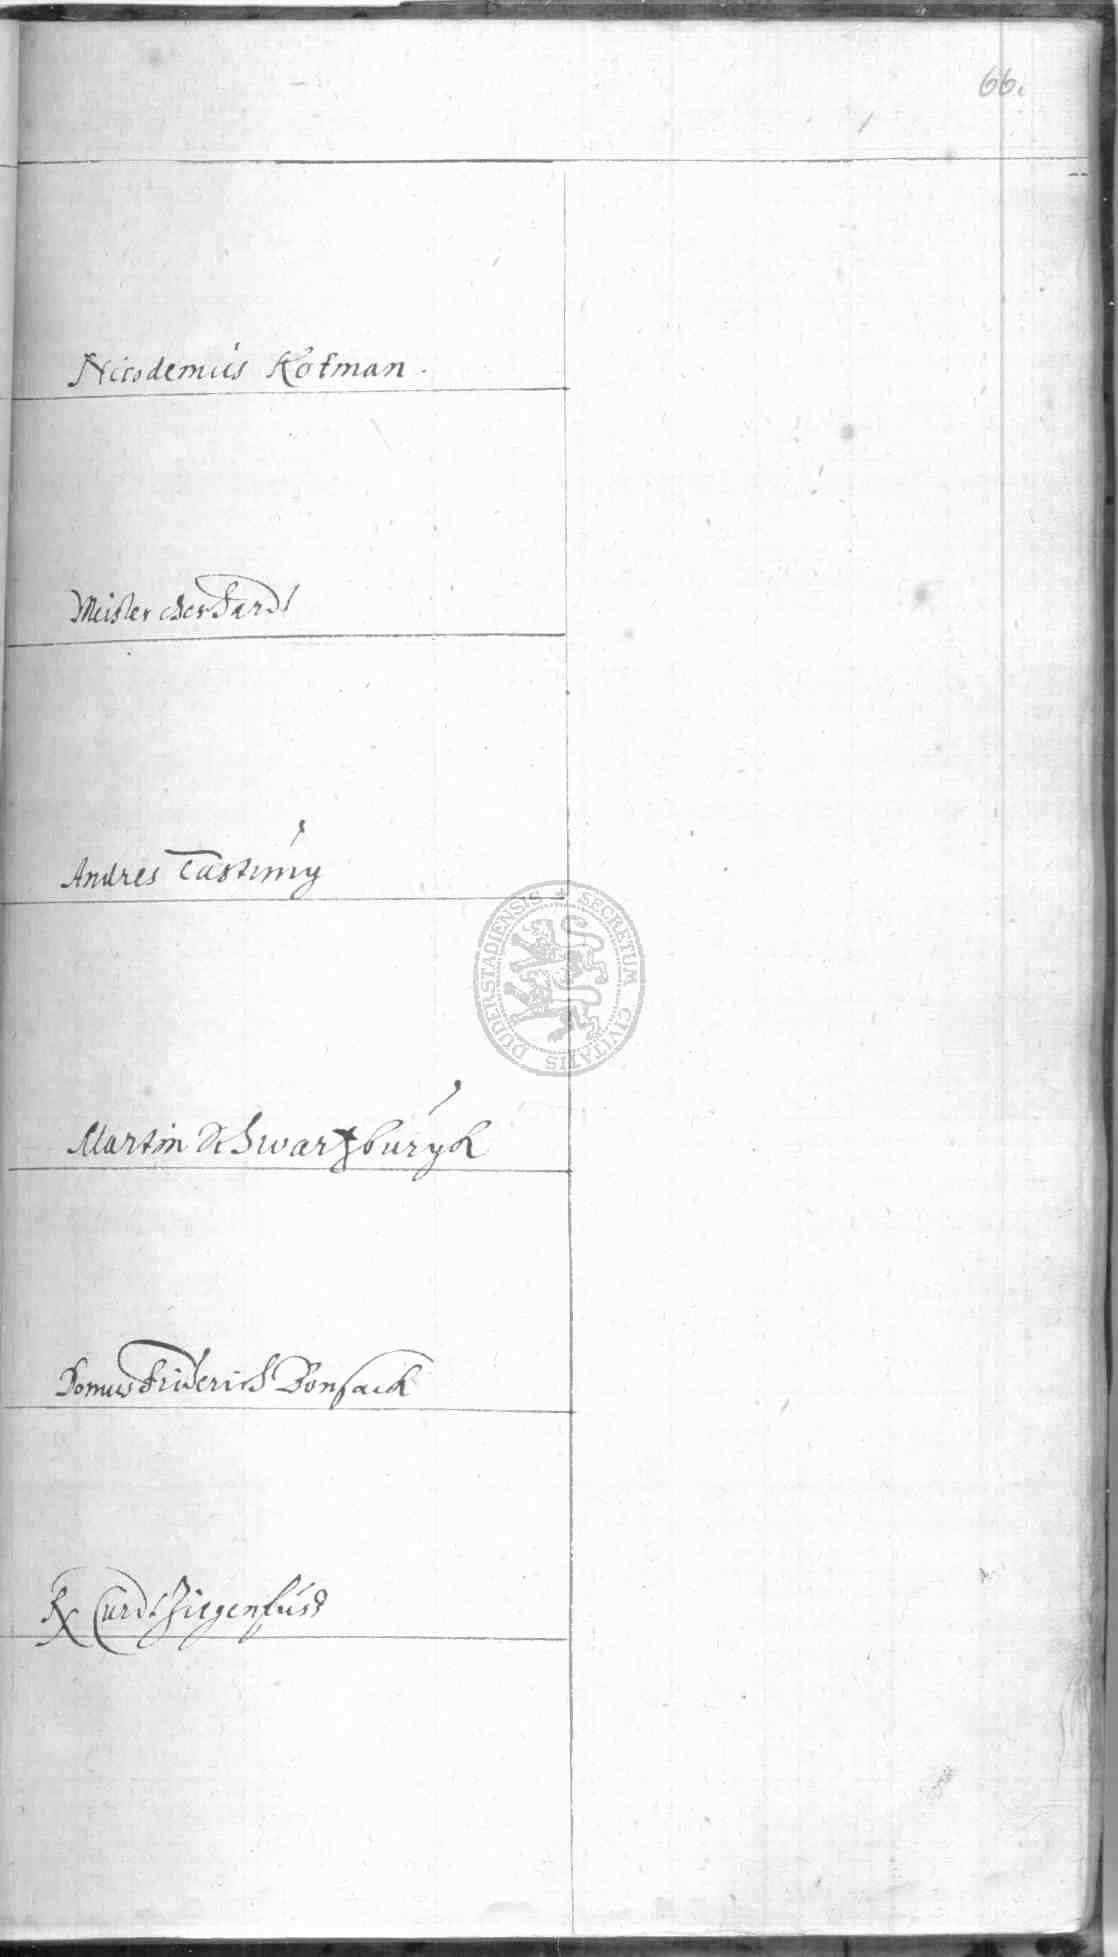 66.
Nicodemus Kofman.
Meister Gerhardt
Andres
Martin Schwartzburgk
Domus Friderich Bonsack
Curdt Ziegenfuss
SECRETUM CIVITATIS DUDERSTADIENSIS